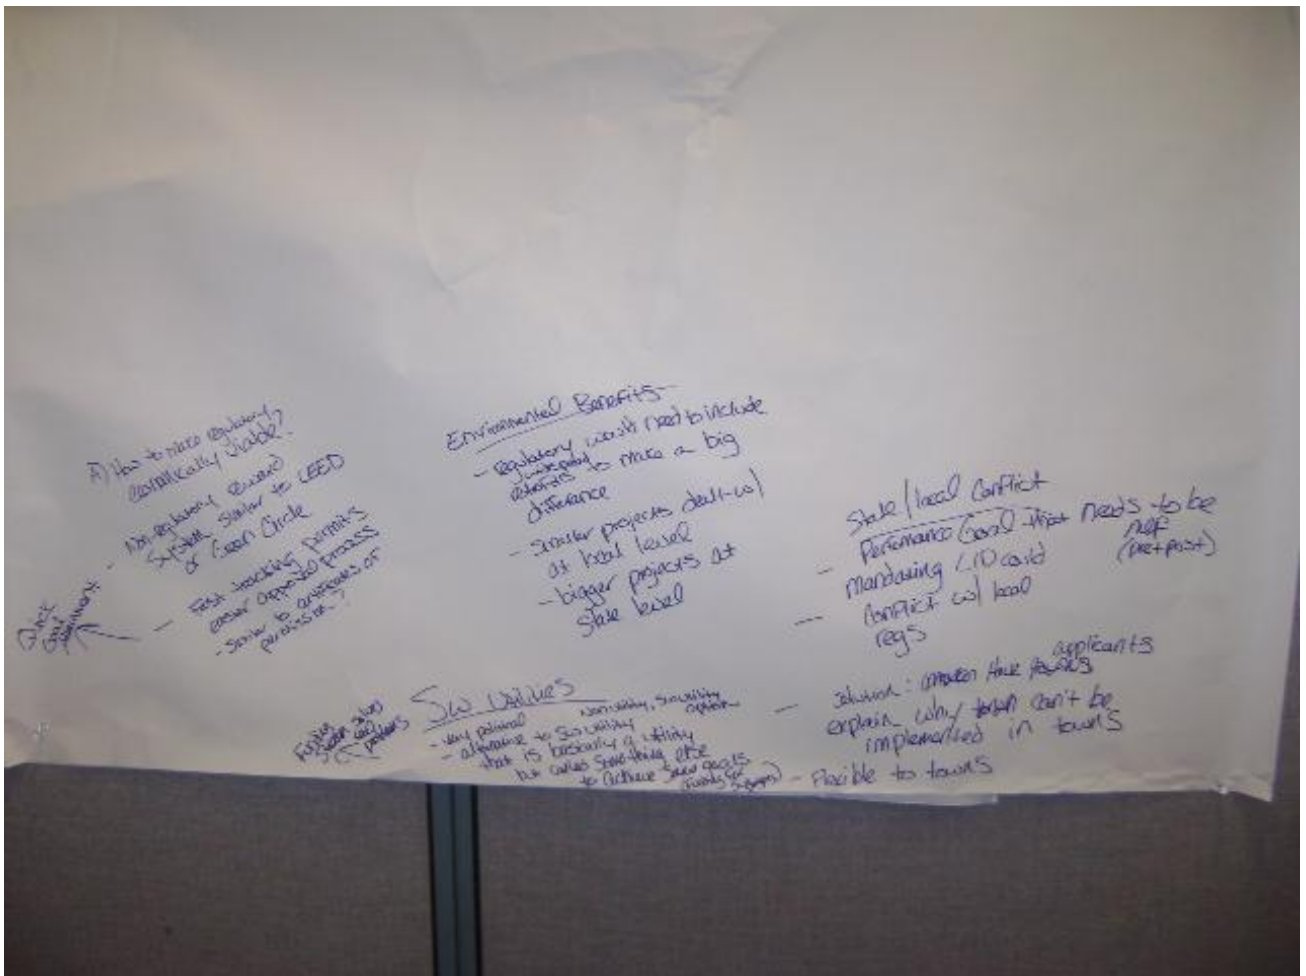 A) How to make regulatory
politically viable?
- Non-regulatory reward
system similar to LEED
or Green Circle
- Fast tracking permits
easier approval process
- Similar to certificates of
permission?
Environmental Benefits
- regulatory would need to include
widespread
retrofits to make a big
difference
- smaller projects dealt w/
at local level
- bigger projects at
state level
State/local Conflict
- Performance Goal that needs to be
met
(pre + post)
- mandating LID could
conflict w/ local
regs
- solution: Have applicants
explain why can't be
implemented in towns
- Flexible to towns
SW Utilities
- very political
Non utility, SW utility
option
- alternative to SW utility
that is basically a utility
but called something else
to achieve goals